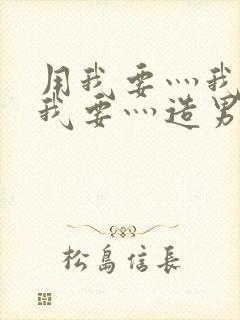 用我要灬我
我要灬造男
松島信長